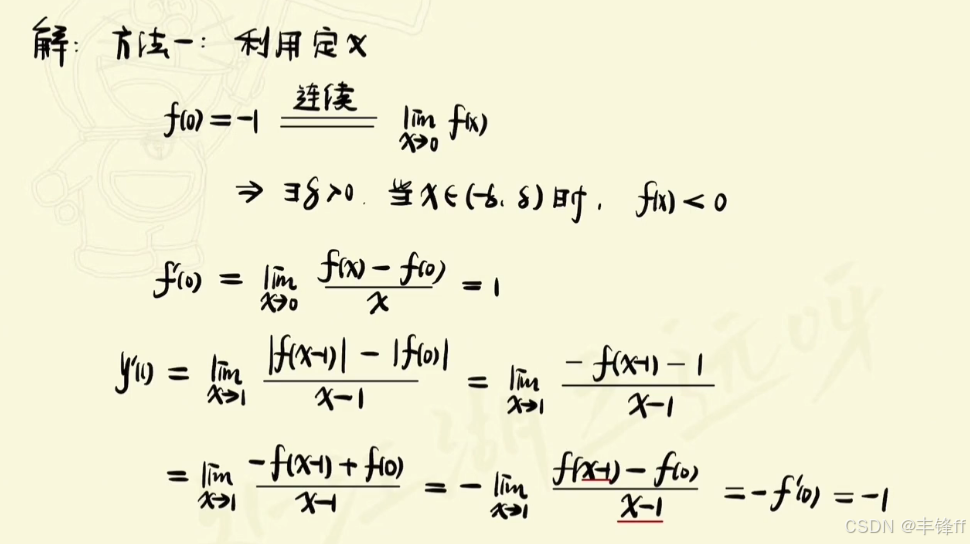 解: 方法一: 利用定义
f(0) = -1 连续 lim x→0 f(x)
⇒ ∃δ>0. 当 x∈(-δ, δ) 时, f(x) < 0
f'(0) = lim x→0 (f(x) - f(0))/x = 1
y'(1) = lim x→1 (|f(x-1)| - |f(0)|)/(x-1) = lim x→1 (-f(x-1) - 1)/(x-1)
= lim x→1 (-f(x-1) + f(0))/(x-1) = - lim x→1 (f(x-1) - f(0))/(x-1) = -f'(0) = -1
CSDN @丰锋ff